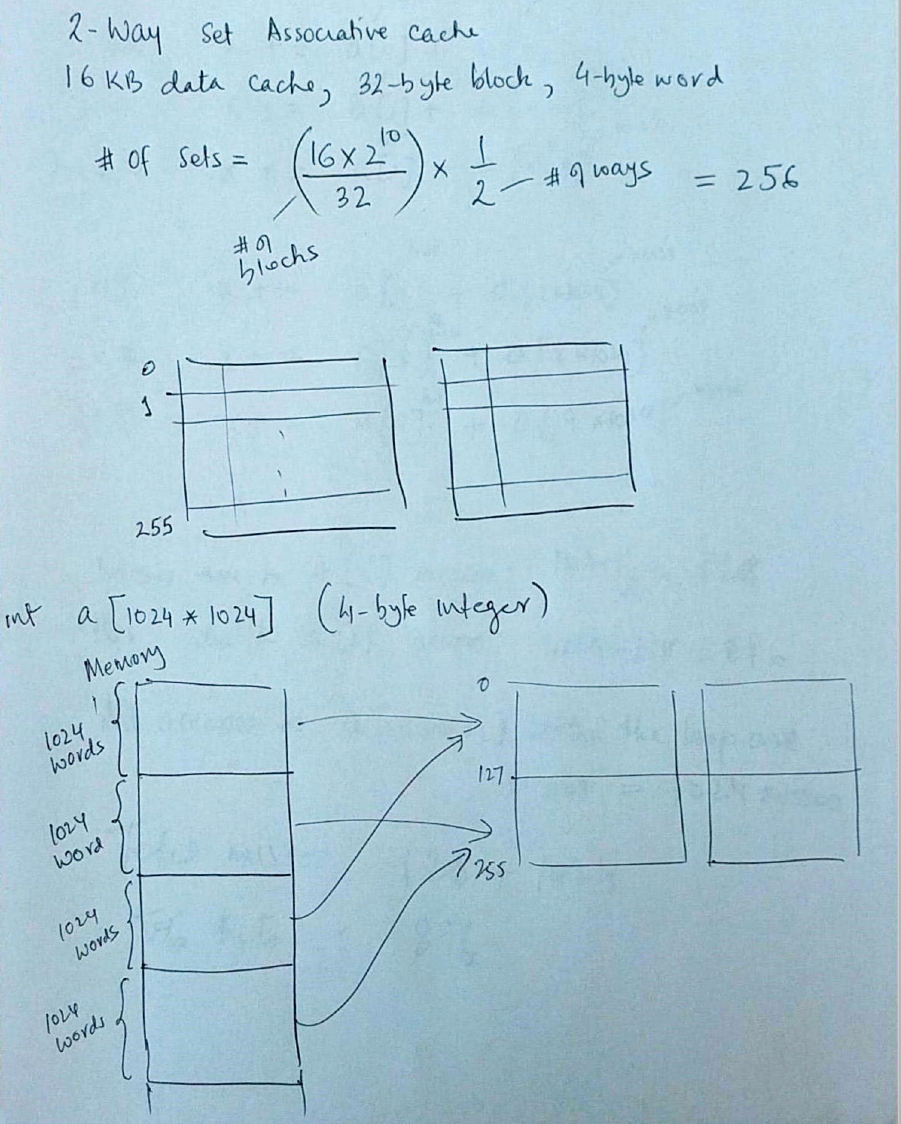 2-Way Set Associative Cache
16 KB data cache, 32-byte block, 4-byte word
# of Sets = (16 x 2^10 / 32) x 1/2 — # of ways = 256
# of
blocks
0
1
255
int a [1024 * 1024] (4-byte integer)
Memory
1024
words
1024
word
1024
words
1024
words
0
127
255